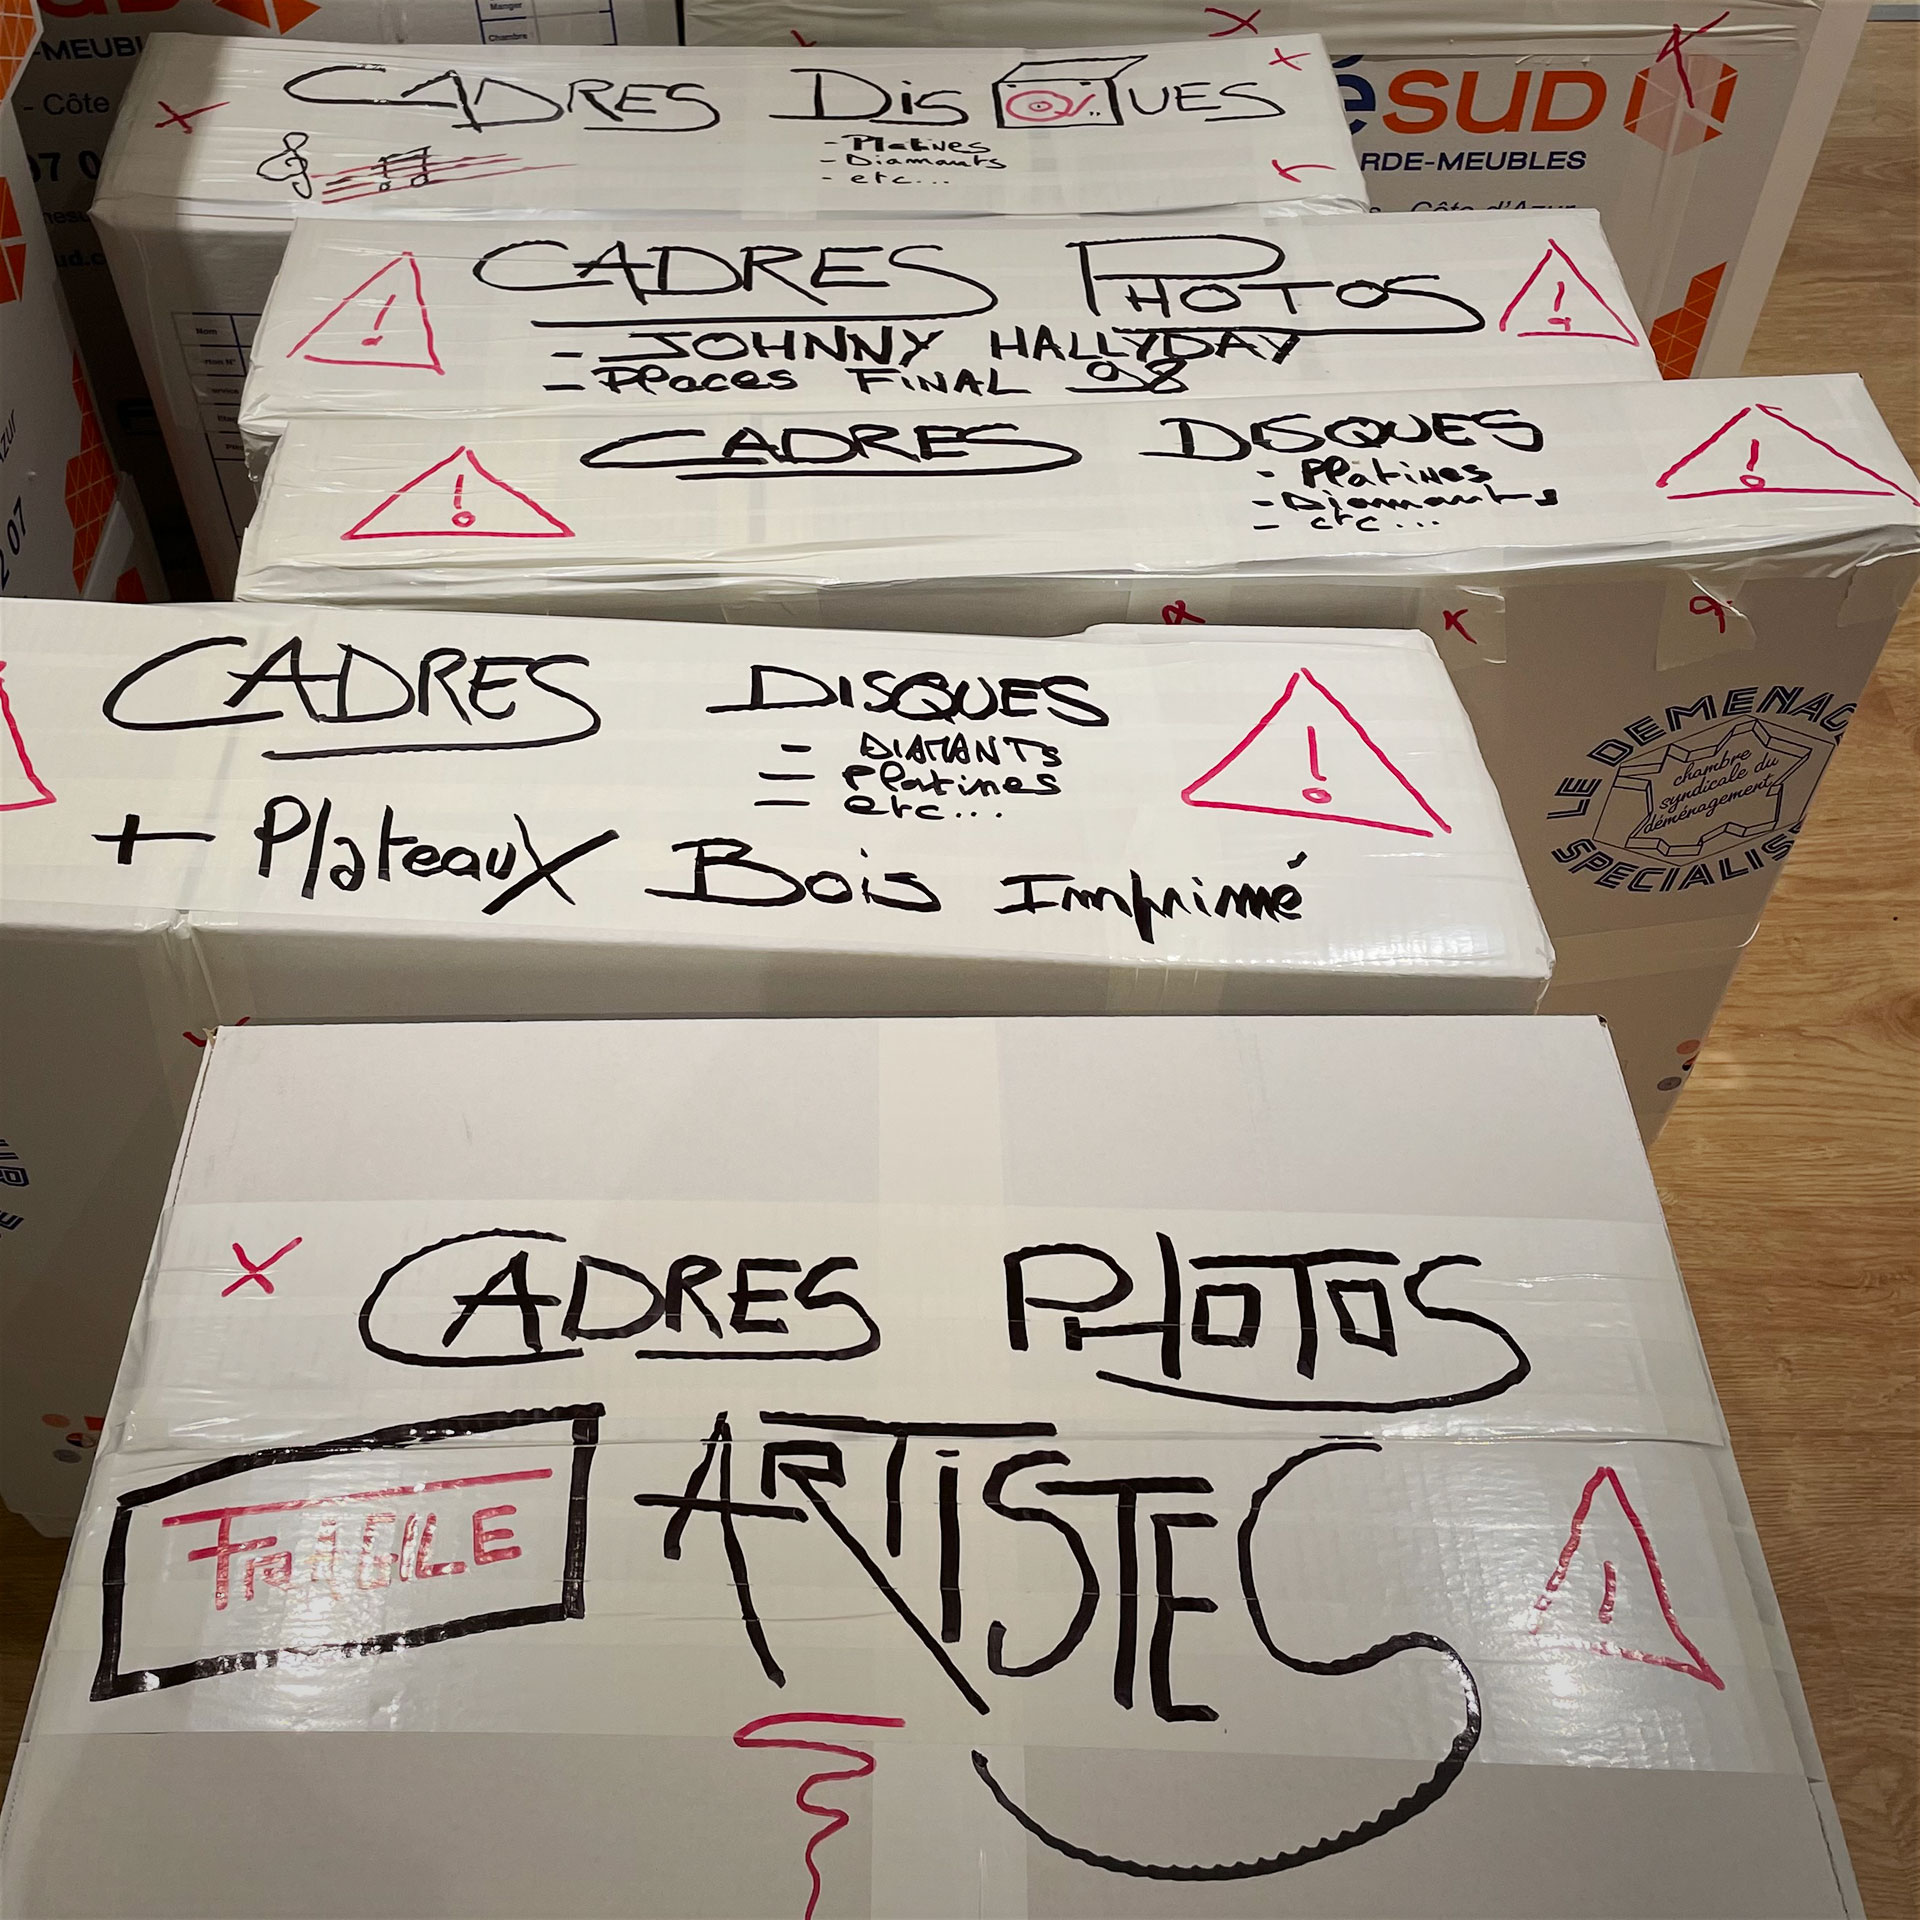 Manger
Chambre
-MEUBL
- Côte
CADRES DISQUES
- Platines
- Diamants
- etc...
éSUD
RDE-MEUBLES
s - Côte d'Azur
CADRES PHOTOS
- JOHNNY HALLYDAY
- Places FINAL 98
Nom
CADRES DISQUES
- Platines
- Diamants
- etc...
2 07
CADRES DISQUES
- DIAMANTS
- Platines
- etc...
+ Plateaux Bois Imprimé
LE DEMENAG
chambre
syndicale du
déménagement
SPECIALIS
CADRES PHOTOS
FRAGILE
ARTISTES